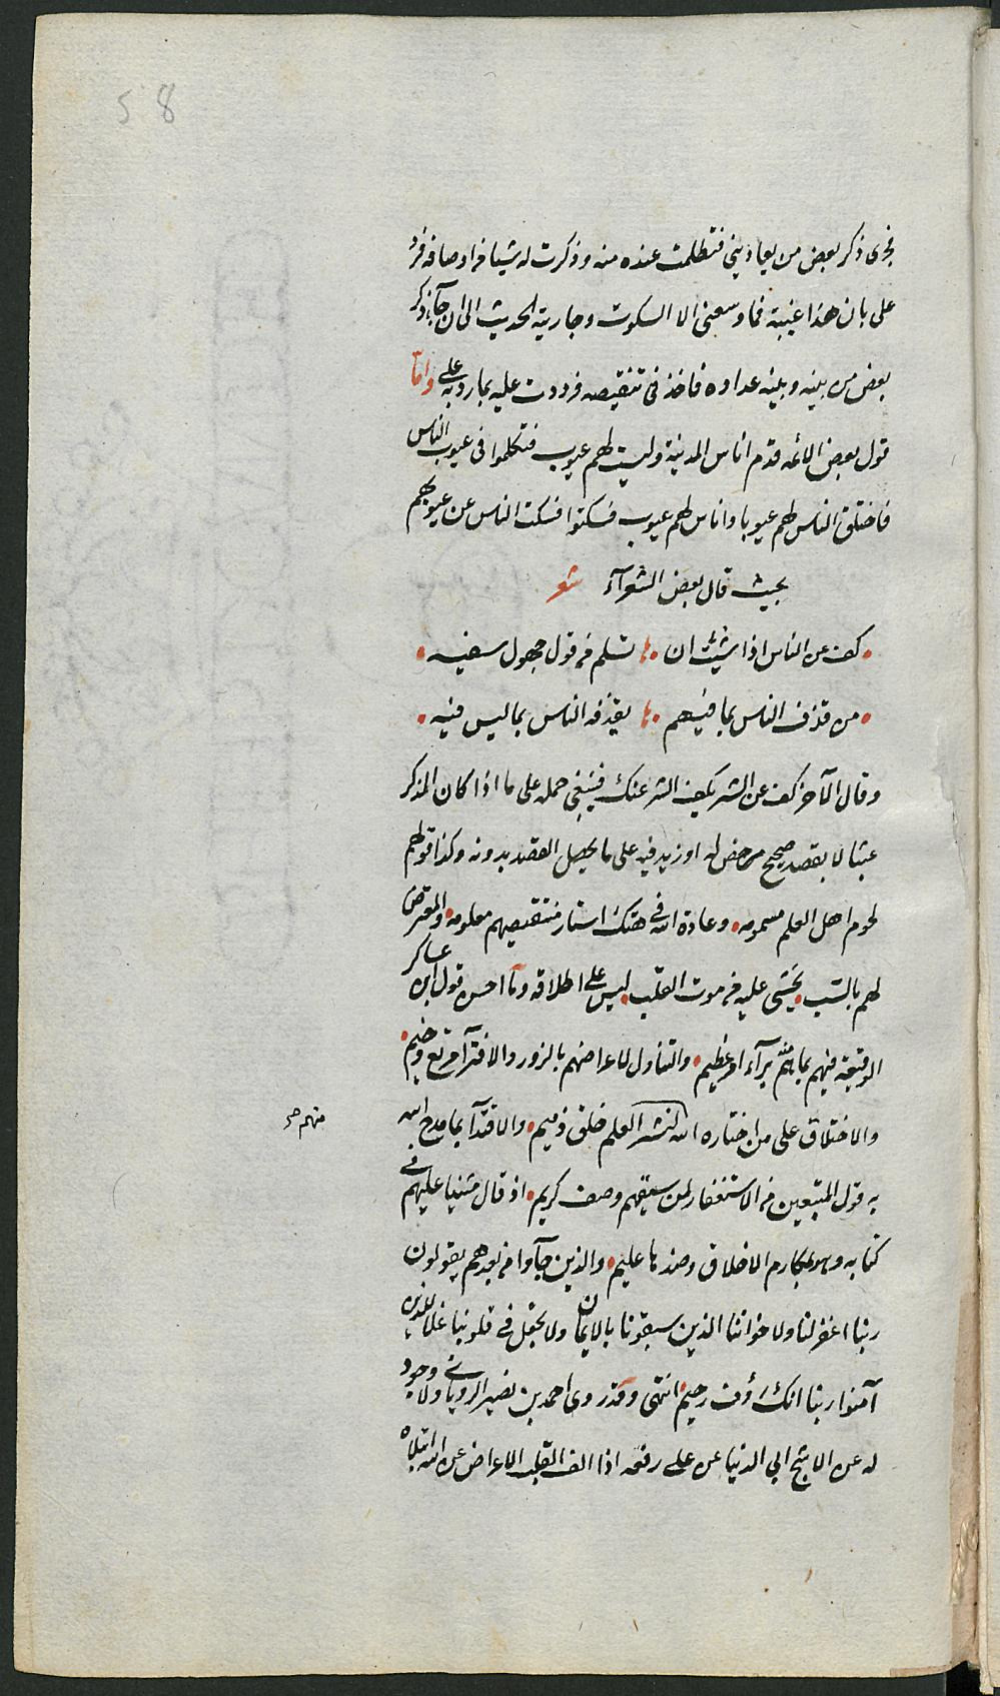 58
فجرى ذكر بعض من يعاديني فتظلمت عنده منه وذكرت له شيئا من اوصافه فرد
على بان هذا غيبة فما وسعنى الا السكوت وجاريته الحديث الى ان جآء ذكر
بعض من بينه وبينه عداوه فاخذ فى تنقيصه فرددت عليه بما رد به على واما
قول بعض الائمه قدم اناس المدينة وليست لهم عيوب فتكلموا فى عيوب الناس
فاختلق الناس لهم عيوبا واناس لهم عيوب فسكتوا فسكت الناس عن عيوبهم
بحيث قال بعض الشعرآء شعر
كف عن الناس اذا شئت ان تسلم من قول جهول سفيه
من قذف الناس بما فيهم يقذفه الناس بما ليس فيه
وقال الآخر كف عن الشر يكف الشر عنك فينبغى حمله على ما اذا كان المذكر
عبثا لا بقصد صحيح مرخص له او زيد فيه على ما يحصل القصد بدونه وكذا قولهم
لحوم اهل العلم مسمومه وعادة الله فى هتك استار منتقصيهم معلومه والمعترض
لهم بالسب يخشى عليه من موت القلب ليس على اطلاقه وما احسن قول ابن عساكر
الوقيعة فيهم بما هم منه برآء امر عظيم والتناول لاعراضهم بالزور والافترآ مرتع وخيم
والاختلاق على من اختاره الله لنشر العلم خلق ذميم والاقتدآ بما مدح الله
منهم صح
به قول المتبعين من الاستغفار لمن سبقهم وصف كريم اذ قال مثنيا عليهم فى
كتابه وهو بمكارم الاخلاق وضدها عليم والذين جآوا من بعدهم يقولون
ربنا اغفر لنا ولاخواننا الذين سبقونا بالايمان ولا تجعل فى قلوبنا غلا للذين
آمنوا ربنا انك رؤف رحيم انتهى وقد روى احمد بن نصير الرويانى ولا وجود
له عن الاشج ابي الدنيا عن على رفعه اذا الف القلب الاعراض عن الله ابتلاه